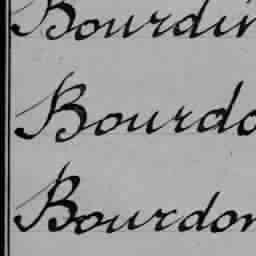 Bourdin
Bourdo
Bourdon